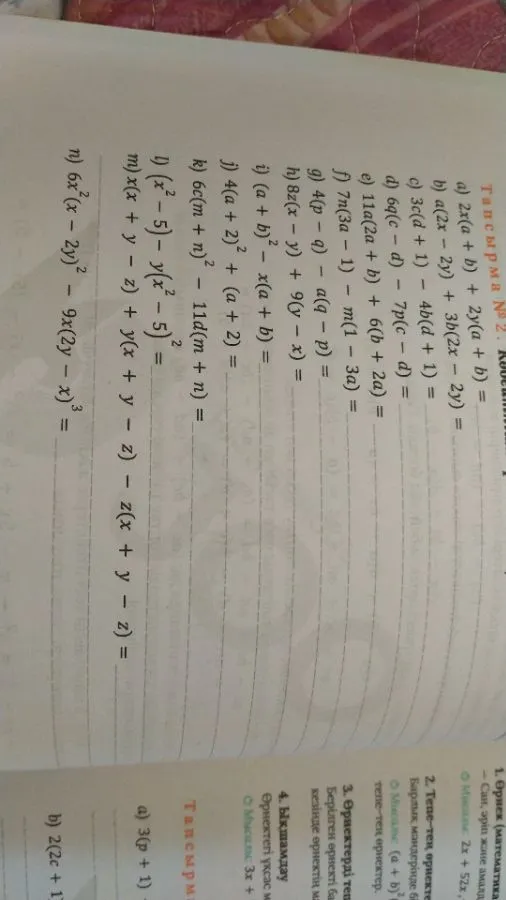 Тапсырма № 2.
a) 2x(a + b) + 2y(a + b) =
b) a(2x − 2y) + 3b(2x − 2y) =
c) 3c(d + 1) − 4b(d + 1) =
d) 6q(c − d) − 7p(c − d) =
e) 11a(2a + b) + 6(b + 2a) =
f) 7n(3a − 1) − m(1 − 3a) =
g) 4(p − q) − a(q − p) =
h) 8z(x − y) + 9(y − x) =
i) (a + b)² − x(a + b) =
j) 4(a + 2)² + (a + 2) =
k) 6c(m + n)² − 11d(m + n) =
l) (x² − 5) − y(x² − 5)² =
m) x(x + y − z) + y(x + y − z) − z(x + y − z) =
n) 6x²(x − 2y)² − 9x(2y − x)³ =
1. Өрнек
– Сан, әріп және
Мысалы: 2x + 52x,
2. Тепе-тең
Барлық мәндерінде
Мысалы: (a + b)
тепе-тең өрнектер.
3. Өрнектерді
Берілген өрнекті
кезінде өрнектің
4. Ықшамдау
Өрнектегі ұқсас
Мысалы: 3x +
a) 3(p + 1)
b) 2(2c + 1